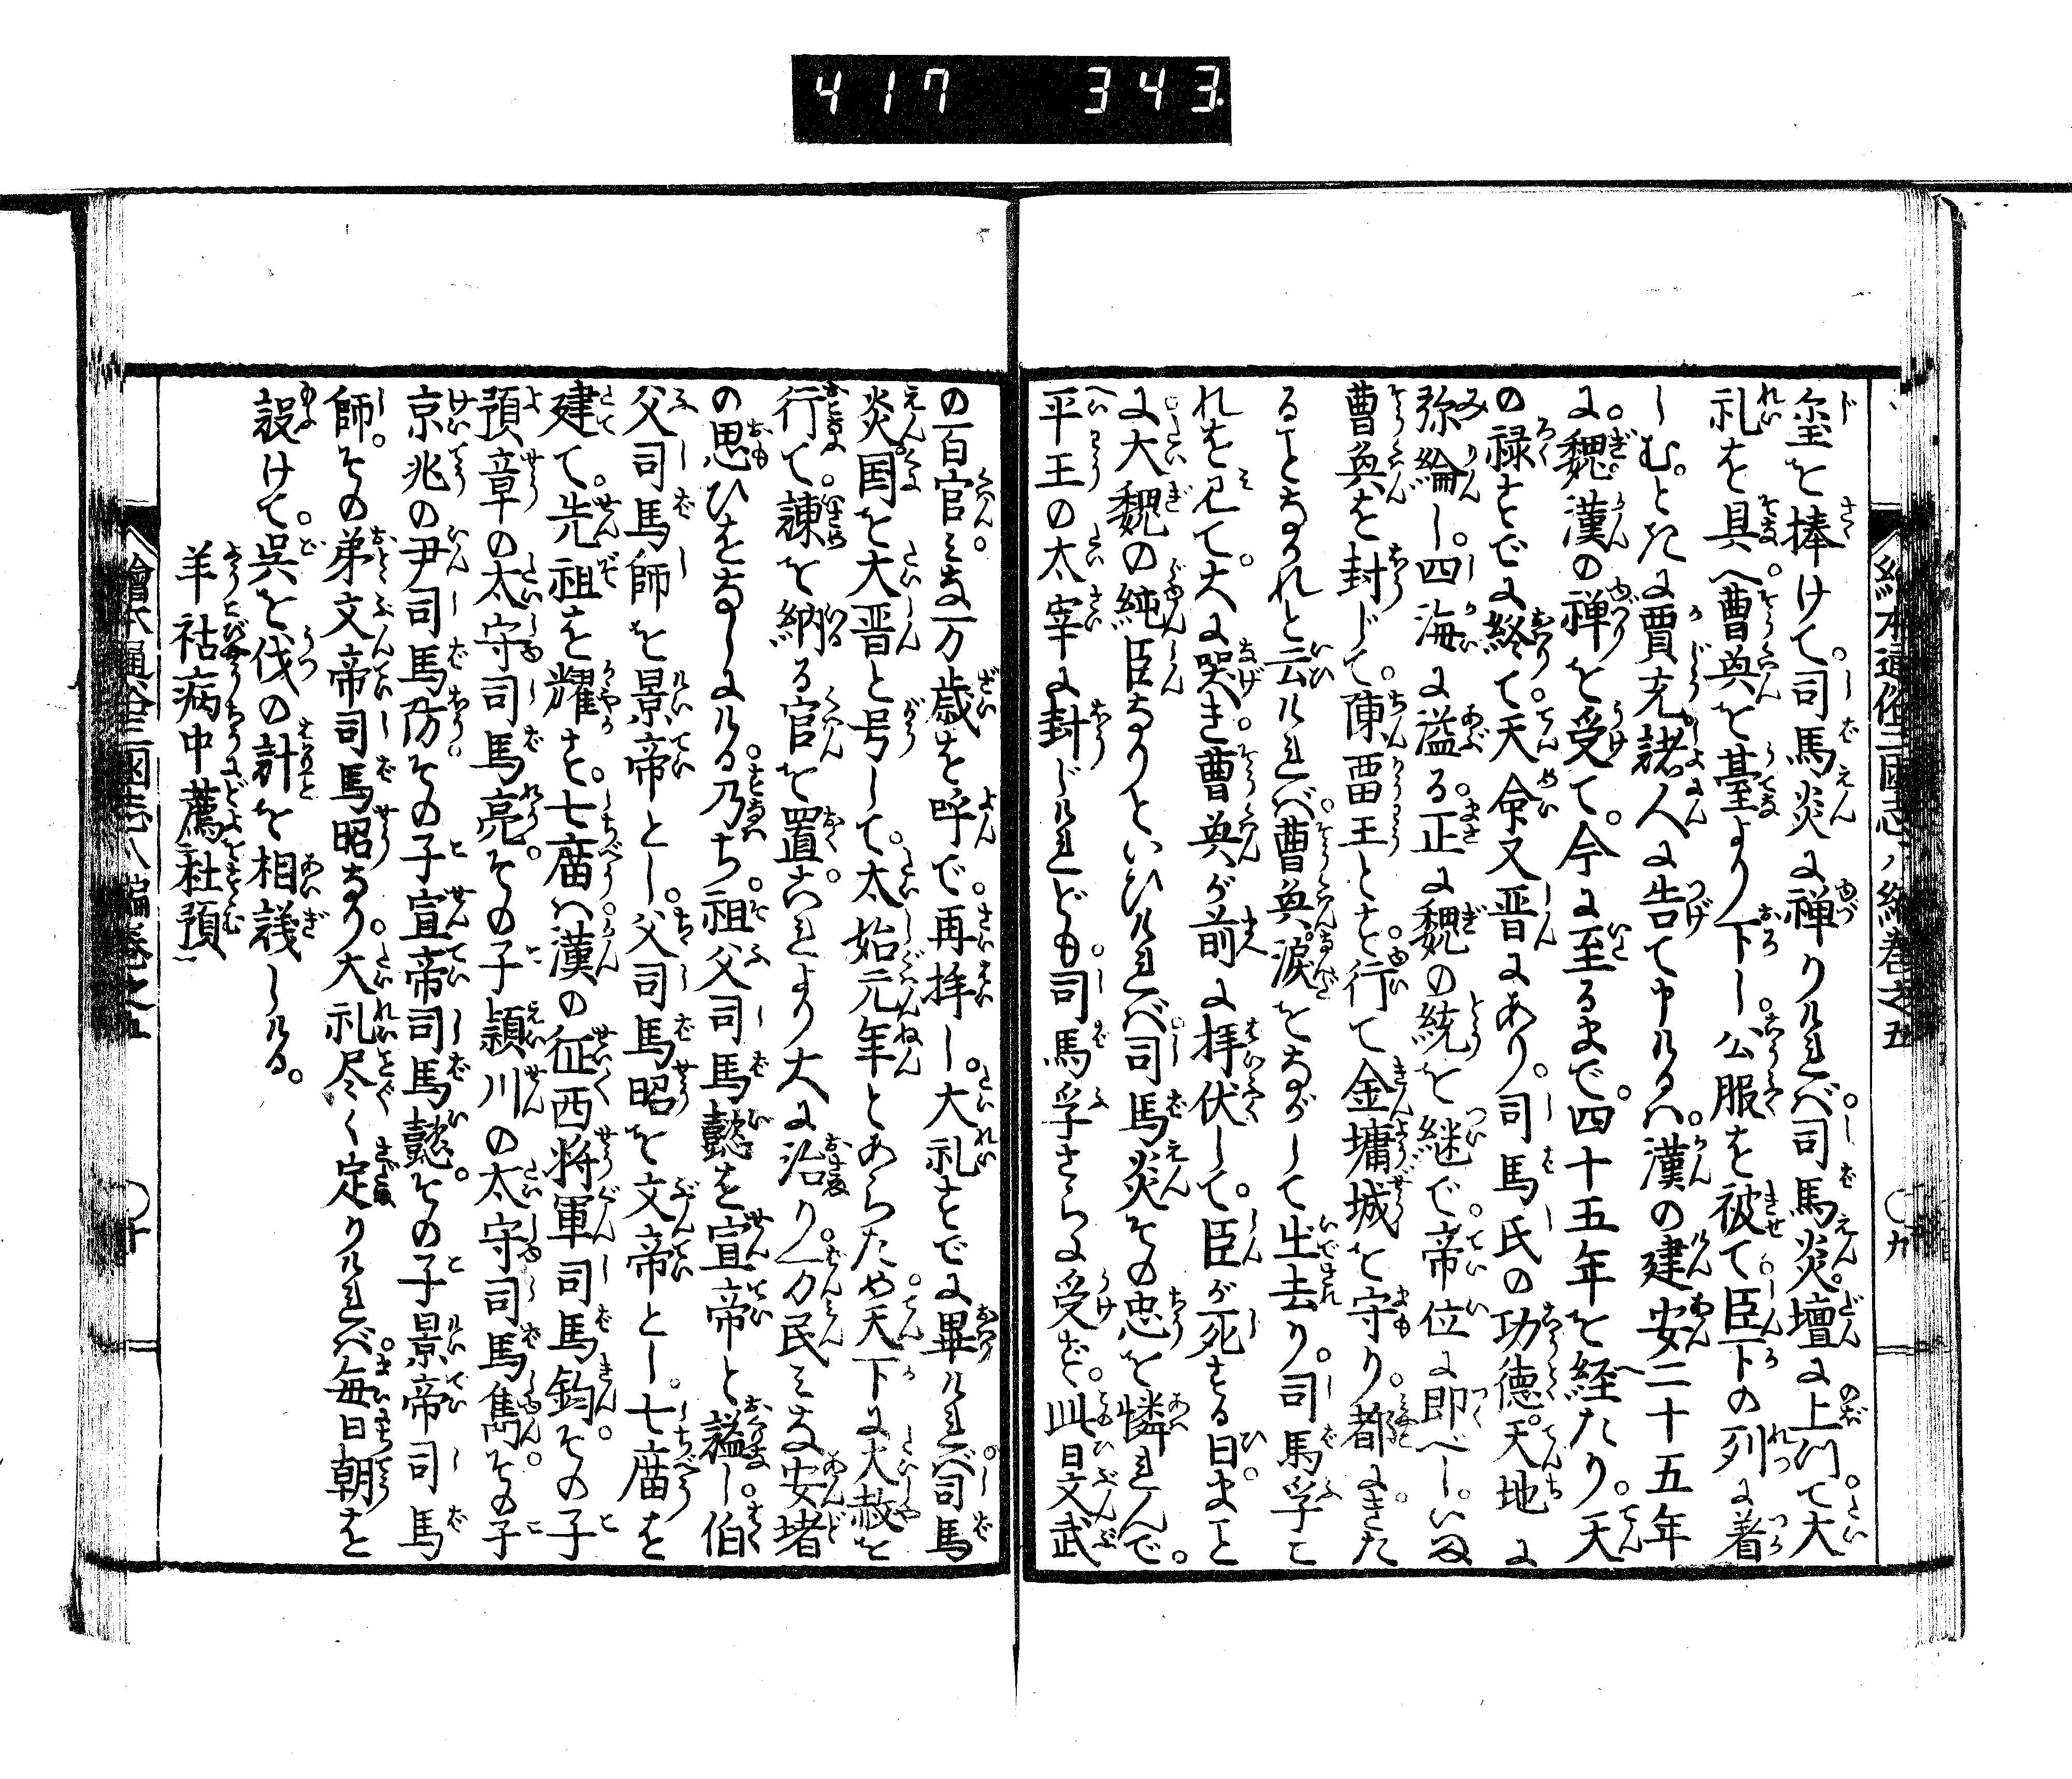 417 343
繪本通俗三國志八編巻之五 〇九
璽を捧けて司馬炎に禅りければ司馬炎壇に上つて大
礼を具へ曹奐を臺より下し公服を被て臣下の列に着
しむときに賈充諸人に告て申けるハ漢の建安二十五年
に魏漢の禅を受て今に至るまで四十五年を経たり天
の禄すでに終て天命又晋にあり司馬氏の功徳天地に
弥綸し四海に溢る正に魏の統を継で帝位に即べしいま
曹奐を封じて陳畱王とす行て金墉城を守り都にきた
ることなかれと云ければ曹奐涙をながして出去り司馬孚こ
れを見て大に哭き曹奐が前に拝伏して臣が死する日まこと
に大魏の純臣なりといひければ司馬炎その忠を憐れんで
平王の太宰に封じけれども司馬孚さらに受ず此日文武
の百官みな万歳を呼で再拝し大礼すでに畢ければ司馬
炎国を大晋と号して太始元年とあらため天下に大赦を
行て諌を納る官を置これより大に治り万民みな安堵
の思ひをなしにける乃ち祖父司馬懿を宣帝と謚し伯
父司馬師を景帝とし父司馬昭を文帝とし七庿を
建て先祖を耀す七庿ハ漢の征西将軍司馬鈞その子
預章の太守司馬亮その子頴川の太守司馬雋その子
京兆の尹司馬防その子宣帝司馬懿その子景帝司馬
師その弟文帝司馬昭なり大礼尽く定りければ毎日朝を
設けて呉を伐の計を相議しける
羊祜病中薦杜預
繪本通俗三國志八編巻之五 〇十